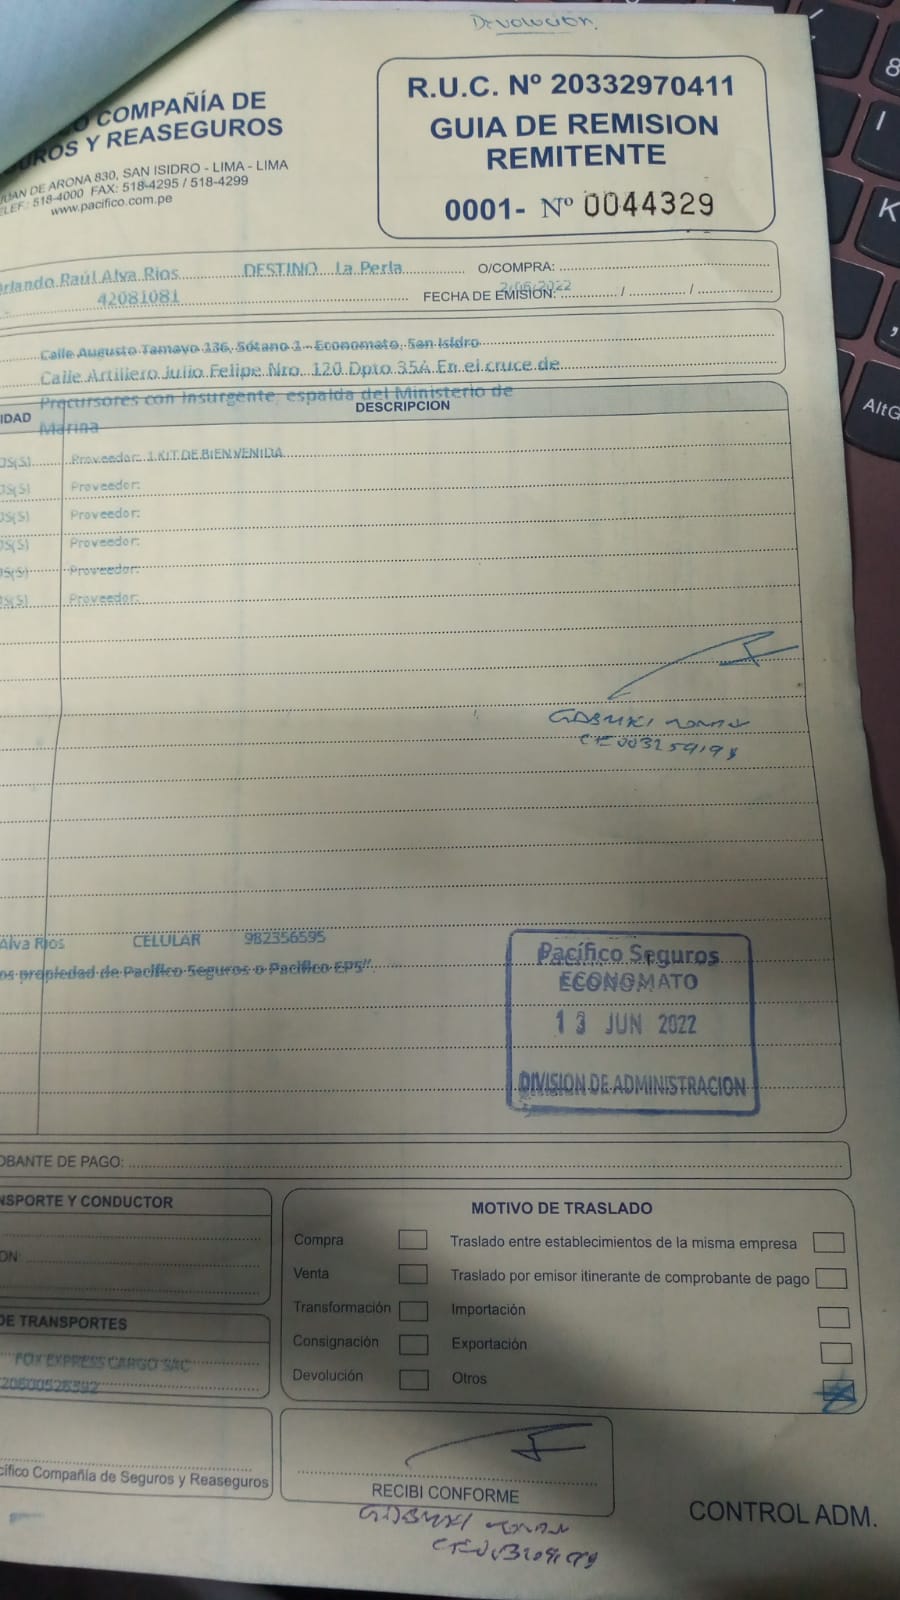 Devolución.
CO COMPAÑÍA DE
UROS Y REASEGUROS
JUAN DE ARONA 830, SAN ISIDRO - LIMA - LIMA
TELEF.: 518-4000 FAX: 518-4295 / 518-4299
www.pacifico.com.pe
R.U.C. Nº 20332970411
GUIA DE REMISION
REMITENTE
0001- Nº 0044329
rlando Raúl Alva Rios DESTINO La Perla O/COMPRA:
42081081 FECHA DE EMISIÓN: / /
2/06/2022
Calle Augusto Tamayo 136, Sótano 1 - Economato, San Isidro
Calle Artillero Julio Felipe Nro. 120 Dpto 35A En el cruce de
Precursores con Insurgente, espalda del Ministerio de
Marina
IDAD DESCRIPCION
OS(S) Proveedor: 1 KIT DE BIENVENIDA
OS(S) Proveedor:
OS(S) Proveedor:
OS(S) Proveedor:
OS(S) Proveedor:
OS(S) Proveedor:
Alva Rios CELULAR 982356595
os propiedad de Pacífico Seguros o Pacífico EPS"
Pacífico Seguros
ECONOMATO
13 JUN 2022
DIVISION DE ADMINISTRACION
OBANTE DE PAGO:
NSPORTE Y CONDUCTOR
ON:
DE TRANSPORTES
FOX EXPRESS CARGO SAC
20600526392
MOTIVO DE TRASLADO
Compra Traslado entre establecimientos de la misma empresa
Venta Traslado por emisor itinerante de comprobante de pago
Transformación Importación
Consignación Exportación
Devolución Otros
cífico Compañía de Seguros y Reaseguros
RECIBI CONFORME
CONTROL ADM.